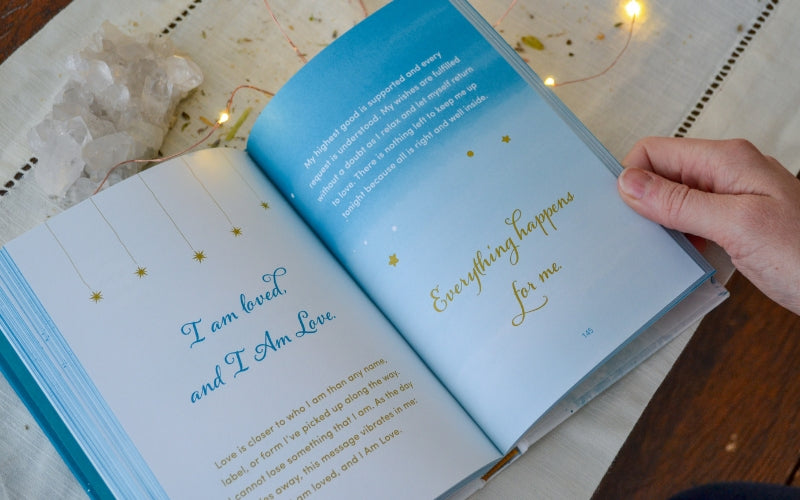 I am loved,
and I Am Love.
Love is closer to who I am than any name,
label, or form I've picked up along the way.
I cannot lose something that I am. As the day
away, this message vibrates in me:
am loved, and I Am Love.
My highest good is supported and every
request is understood. My wishes are fulfilled
without a doubt as I relax and let myself return
to love. There is nothing left to keep me up
tonight because all is right and well inside.
Everything happens
for me.
145